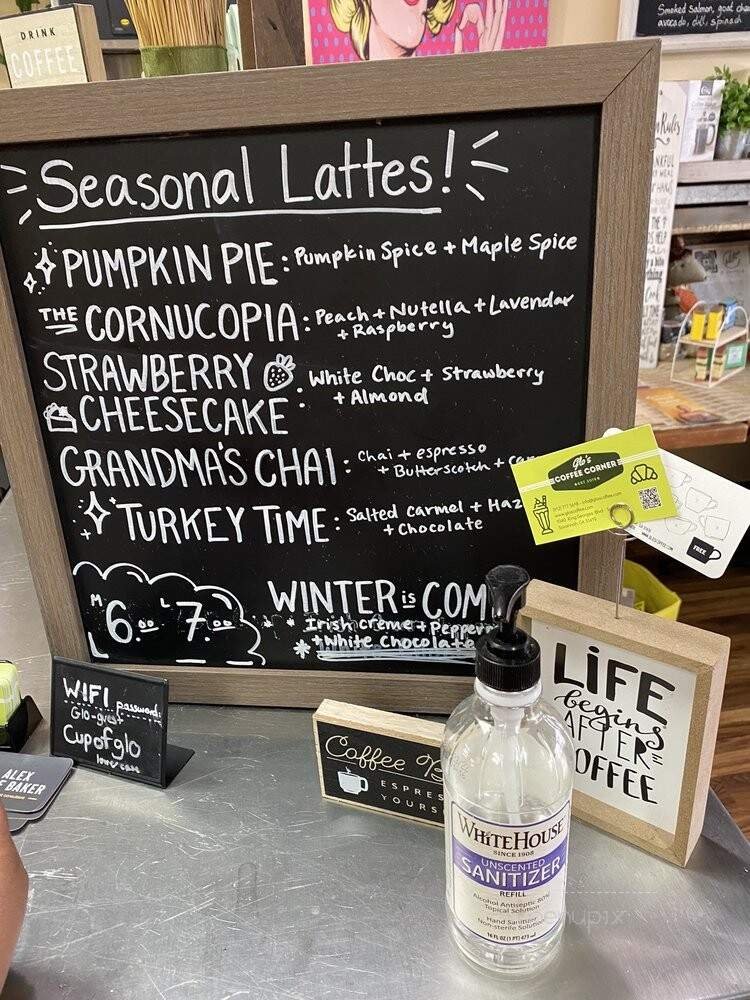 DRINK
COFFEE
Smoked salmon, goat chee
avocado, dill, spinach
Seasonal Lattes!
PUMPKIN PIE: Pumpkin Spice + Maple Spice
THE CORNUCOPIA: Peach + Nutella + Lavendar
+ Raspberry
STRAWBERRY
CHEESECAKE: White Choc + Strawberry
+ Almond
GRANDMA'S CHAI: Chai + espresso
+ Butterscotch + car
TURKEY TIME: Salted Carmel + Haz
+ Chocolate
M 6.00 L 7.00
WINTER is COM
* Irish Creme + Pepper
* + White Chocolate
Glo's
COFFEE CORNER
FREE
WIFI password:
Glo-guest
Cupofglo
lower case
ALEX
BAKER
Coffee B
ESPRES
YOURS
LiFE
begins
AFTER
COFFEE
WHITEHOUSE
SINCE 1908
UNSCENTED
SANITIZER
REFILL
Alcohol Antiseptic 80%
Topical Solution
Hand Sanitizer
Non-sterile Solution
16 FL OZ (1 PT) 473 ml
menupix